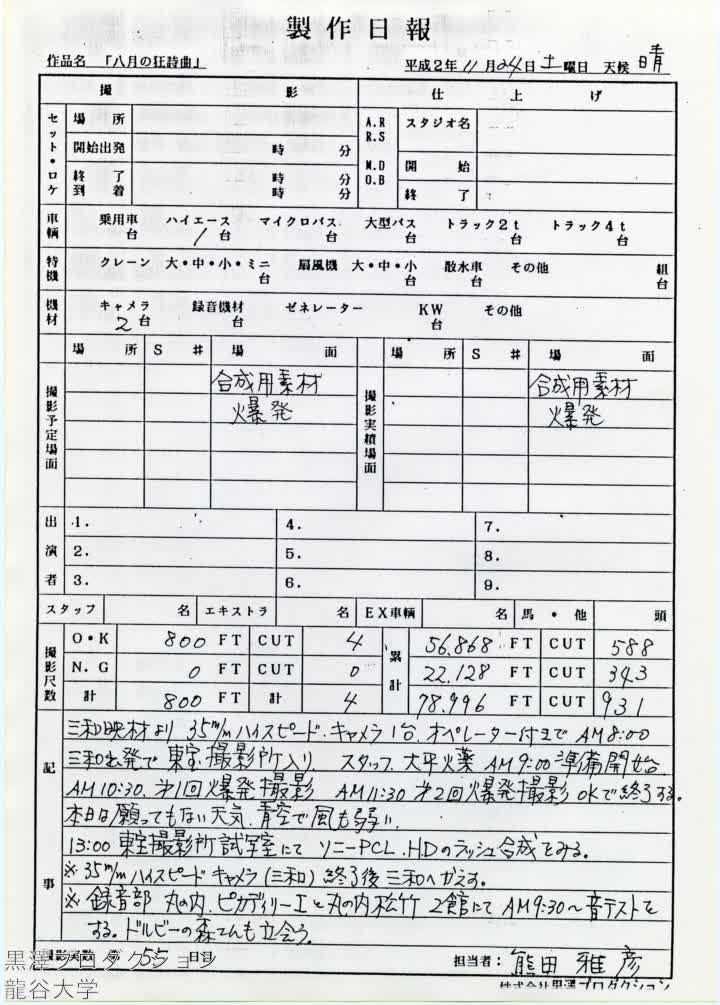 製作日報
作品名 「八月の狂詩曲」 平成2年 11月24日 土曜日 天候 晴
撮影 仕上げ
セット・ロケ 場所 A.R R.S スタジオ名
開始出発 時 分
終了 時 分 M.D O.B 開始
到着 時 分 終了
車輌 乗用車 台 ハイエース 1台 マイクロバス 台 大型バス 台 トラック2t 台 トラック4t 台
特機 クレーン 大・中・小・ミニ 台 扇風機 大・中・小 台 散水車 台 その他 組 台
機材 キャメラ 2台 録音機材 台 ゼネレーター KW 台 その他
場所 S # 場面 場所 S # 場面
撮影予定場面 合成用素材 撮影実績場面 合成用素材
爆発 爆発
出演者 1. 4. 7.
2. 5. 8.
3. 6. 9.
スタッフ 名 エキストラ 名 EX車輌 名 馬・他 頭
撮影尺数 O・K 800 FT CUT 4 累計 56.868 FT CUT 588
N.G 0 FT CUT 0 22.128 FT CUT 343
計 800 FT 計 4 78.996 FT CUT 931
記事
三和映材より 35m/mハイスピード・キャメラ1台、オペレーター付きで AM8:00
三和出発で東宝撮影所入り スタッフ、大平火薬 AM9:00 準備開始、
AM10:30、オ1回爆発撮影 AM11:30 オ2回爆発撮影 OKで終了する。
本日は願ってもない天気、青空で風も弱い。
13:00 東宝撮影所 試写室にて ソニーPCL、HDのラッシュ合成をみる。
※35m/mハイスピードキャメラ(三和)終了後 三和へかえす。
※録音部 丸の内、ピカデリー1と丸の内松竹 2館にて AM9:30〜音テストを
する。ドルビーの森さんも立会う。
撮影実数 第 55 日目 担当者: 熊田雅彦
株式会社黒澤プロダクション
黒澤プロダクション
龍谷大学